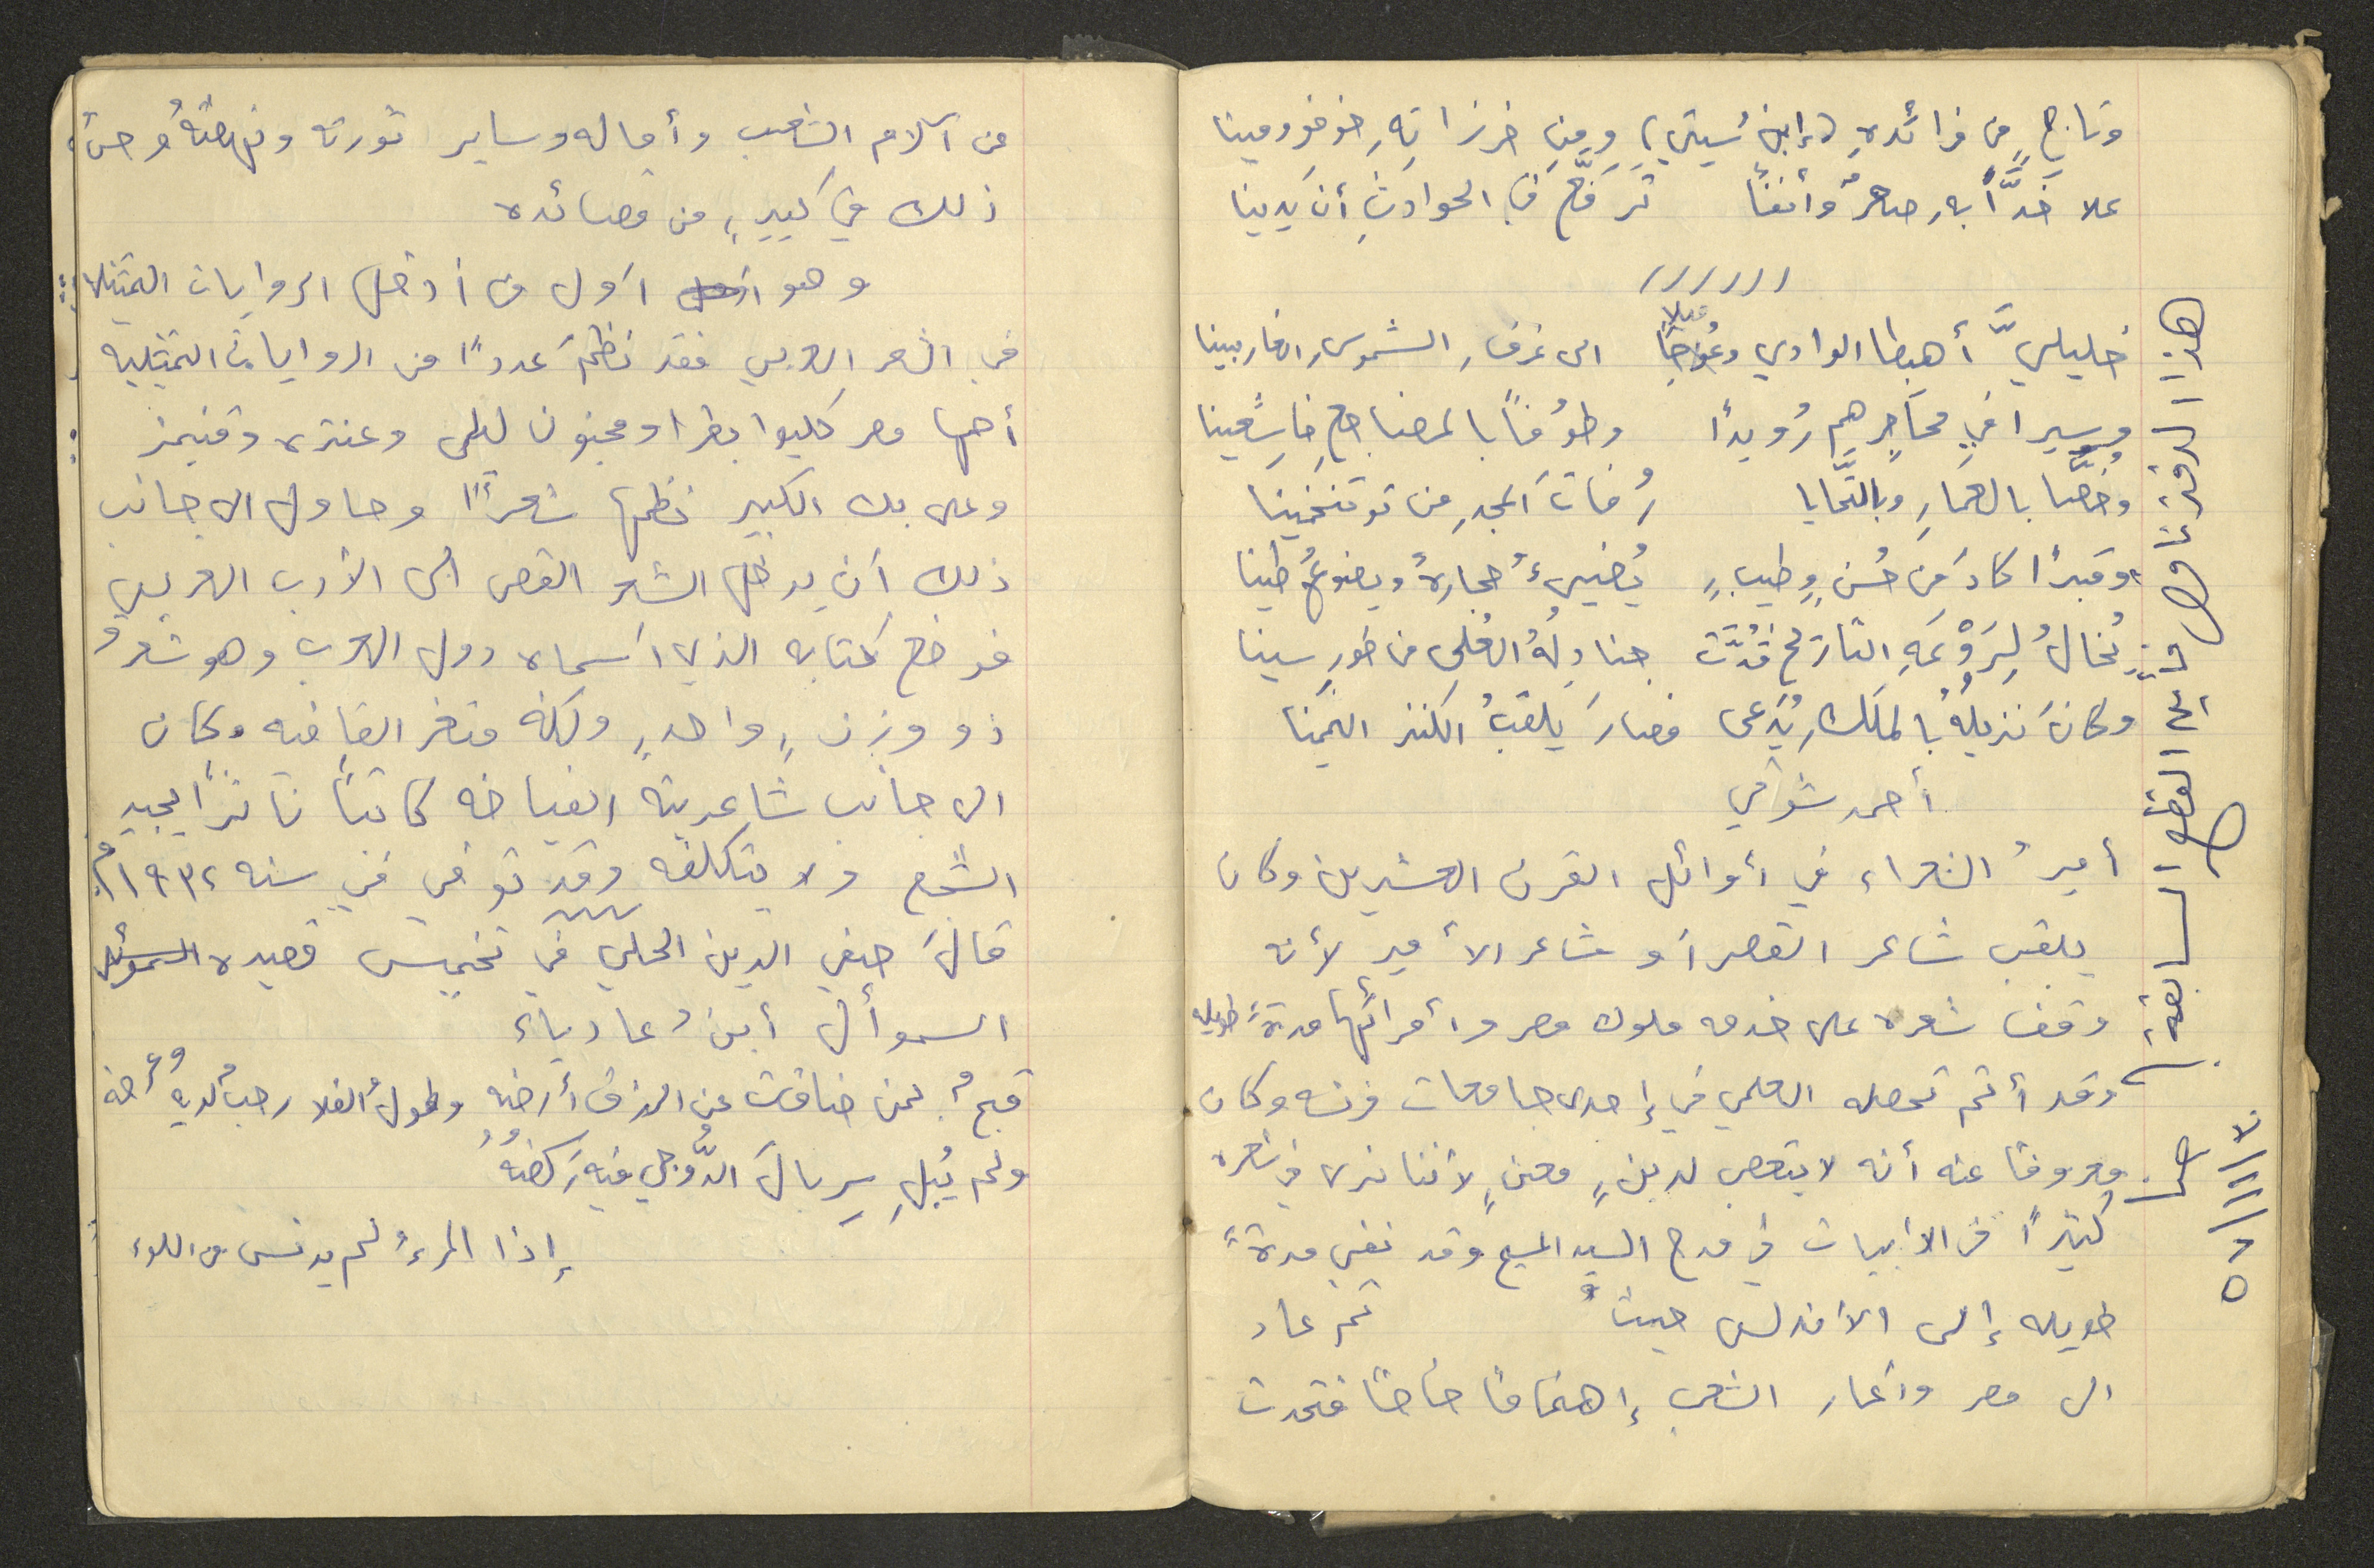 وتاجٍ من فرائدهِ (إبن سيتي) ومِن خرزاتِهِ خوفو ومينا
علا خدَّاً به صعرٌ وأنفاً ترفَّع في الحوادثِ أن يَدينا
//////
خليليَّ أهبطا الوادي وميلا الى غرفِ الشموسِ الغاربينا
وسيرا في محاجرِهم رُويداً وطوُفاً بالمضاجعِ خاشعينا
وخُصَّا بالعمارِ وبالتَّحايا رُفاتَ المجدِ من توتنخمينا
وقبراً كادَ من حُسنٍ وطيبٍ يُضيىءُ حجارهُ ويضوعُ طينا
يُخالُ لِرَوْعَةِ التاريخ قُدَّت جنادِلُهُ العُلى من طورِ سينا
وكانَ نزيلُهُ بالملكِ يُدعى فصارَ يلقبُ الكنز الثمينا
أحمد شوقي
أميرُ الشعراء في أوائل القرن العشرين وكان
يلقب شاعر القصر أو شاعر الأمير لأنه
وقف شعره على خدمه ملوك مصر وأمرائها مدةً طويله
وقد أتم تحصله العلمي في إحدى جامعات فرنسه وكان
معروفا عنه أنه لا يتعصب لدينٍ معينٍ لأننا نرى في شعره
كثيراً من الأبيات في مدح السيد المسيح وقد نفي مدةً
طويله إلى الأندلس حيث ثم عاد
الى مصر وأعار الشعب إهتماماً خاصاً فتحدث
هذا الدفتر ناقص وتابع القطع السابقة
عن آلام الشعب وأماله وساير ثورته ونهضتهُ وحتى
ذلك في كبيرٍ من قصائده
وهو اول من أدخل الروايات التمثيلية
في الشعر العربي فقد نظم عدداً من الروايات التمثيليه
أهمها مصر كليوا بطرا ومجنون ليلى وعنتره وقمبيز
وعلى بك الكبير نظمها شعراً وحاول الى جانب
ذلك أن يدخل الشعر القصى الى الأدب العربي
فوضع كتابه الذي اسماه دول العرب وهو شعرٌ
ذو وزنٍ واحدٍ ولكنه متغير القافيه وكان
الى جانب شاعريته الفياضه كاتباً ناثراً يجيد
السَّجع ولا يتكلفه وقد توفي في سنه ١٩٣٢م
قالَ صفي الدين الحلي في تخميس قصيده
السموأل أبن عادياء
قبيحٌ بمن ضاقت عن الرزق أرضه وطولُ الفلا رحبٌ لديهُ وعرضه
ولم يُبلِ سِربالَ الدُّوجي فيه رَكضُهُ
إذا المرءُ لم يدنس من اللوء